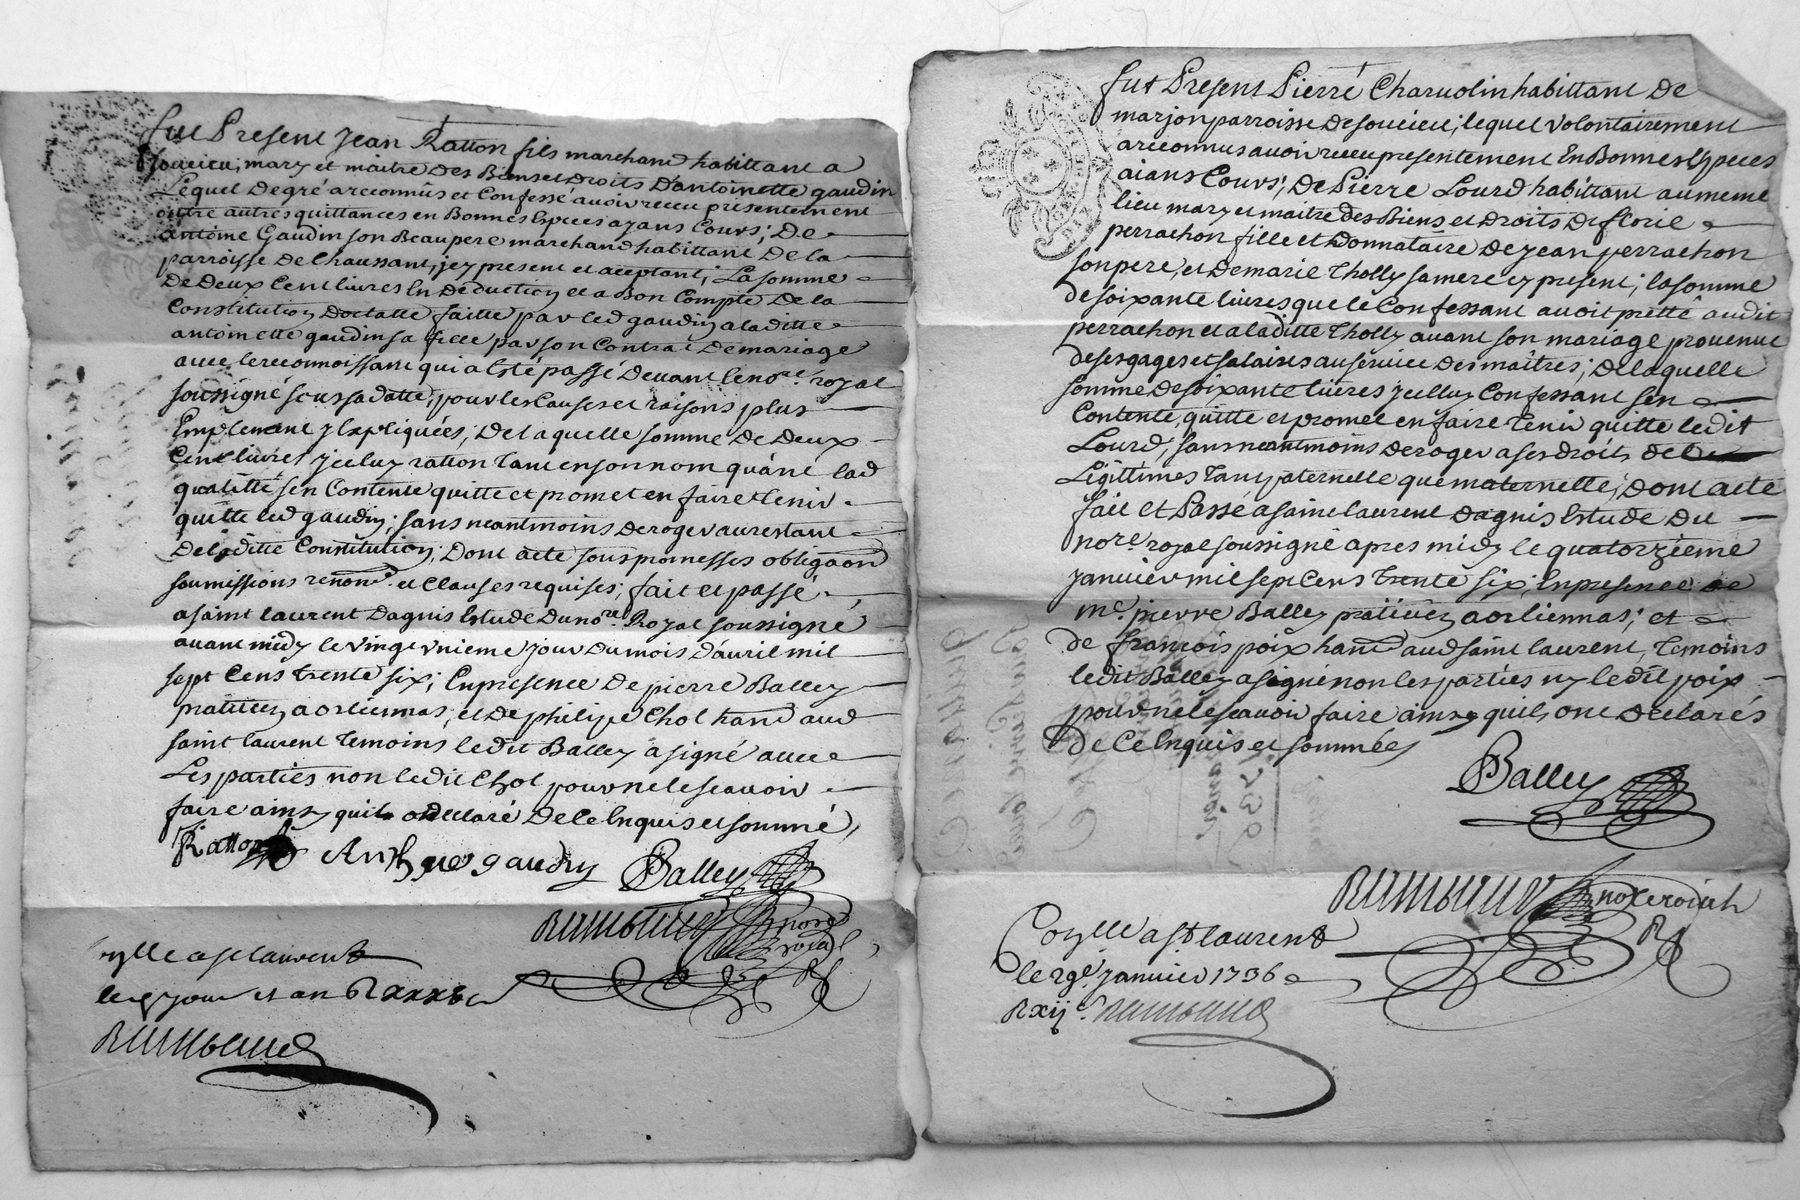 fut Present Jean Ratton fils marchand habittant a
Soucieu, mary et maitre des Biens et Droits D'antoinette gaudin
Lequel Degré a reconnûs et Confessé avoir receu presentement
outre autres quittances en Bonnes Especes ayans Cours; De
antoine Gaudin son Beaupere marchand habittant De la
parroisse De Chaussant, jcy present et aceptant; La somme
De Deux Cent livres En Deduction et a Bon Compte De la
Constitution Dottalle faitte par led gaudin a laditte
antoinette gaudin sa fille par son Contrat De mariage
avec le reconnoissant qui a Esté passé Devant le nore. royal
soussigné sous sa datte, pour les Causes et raisons plus
Emplement y Expliquées; De laquelle somme De Deux
Cent livres jceluy ratton tant en son nom qu'àné lad
qualitté s'en Contente quitte et promet en faire tenir
quitte led gaudin; sans neantmoins Deroger au restant
De laditte Constitution; Dont acte sous promesses obligaon
soumissions renon. et Clauses requises; fait et passé
a saint laurent Dagnis Estude Du nore Royal soussigné
avant midy le vingt vnieme jour Du mois D'avril mil
sept Cens trente six; En presence De pierre Balley
pratitien a orliennas; et De philipe Chol hant aud
saint laurent temoins ledit Balley a signé avec
Les parties non ledit Chol pour ne le scavoir
faire ainsy quil a declaré De Ce Enquis et sommé,
Ratton gaudin Balley
nore royal
le a st laurent
les jour et an R xxx
fut Present Pierre Charuolin habittant De
marjon parroisse De soucieu; lequel volontairement
a reconnus avoir receu presentement En Bonnes Especes
aians Cours; De Pierre Lourd habittant au meme
lieu mary et maitre des Biens et Droits De florie
perrachon fille et Donnataire De jean perrachon
son pere, et De marie Tholly sa mere cy present; la somme
de soixante livres que le Confessant avoit pretté audit
perrachon et a laditte Tholly avant son mariage provenue
de ses gages et salaires au service Des maîtres; De laquelle
somme De soixante livres jcelluy Confessant s'en
Contente, quitte et promet en faire tenir quitte ledit
Lourd; sans neantmoins Deroger a ses droits de
Légittimes tant paternelle que maternelle; Dont acte
fait et Passé a saint laurent Dagnis Estude Du
nore. royal soussigné apres midy le quatorzieme
janvier mil sept Cens trente six; En presence De
me. pierre Balley pratitien a orliennas; et
de françois poix hant aud saint laurent, temoins
ledit Balley a signé non les parties ny ledit poix
pour ne le scavoir faire ainsy quils ont declarés
de Ce Enquis et sommées
Balley
note roial
Corylle a st laurent
le janvier 1736
R xij s.